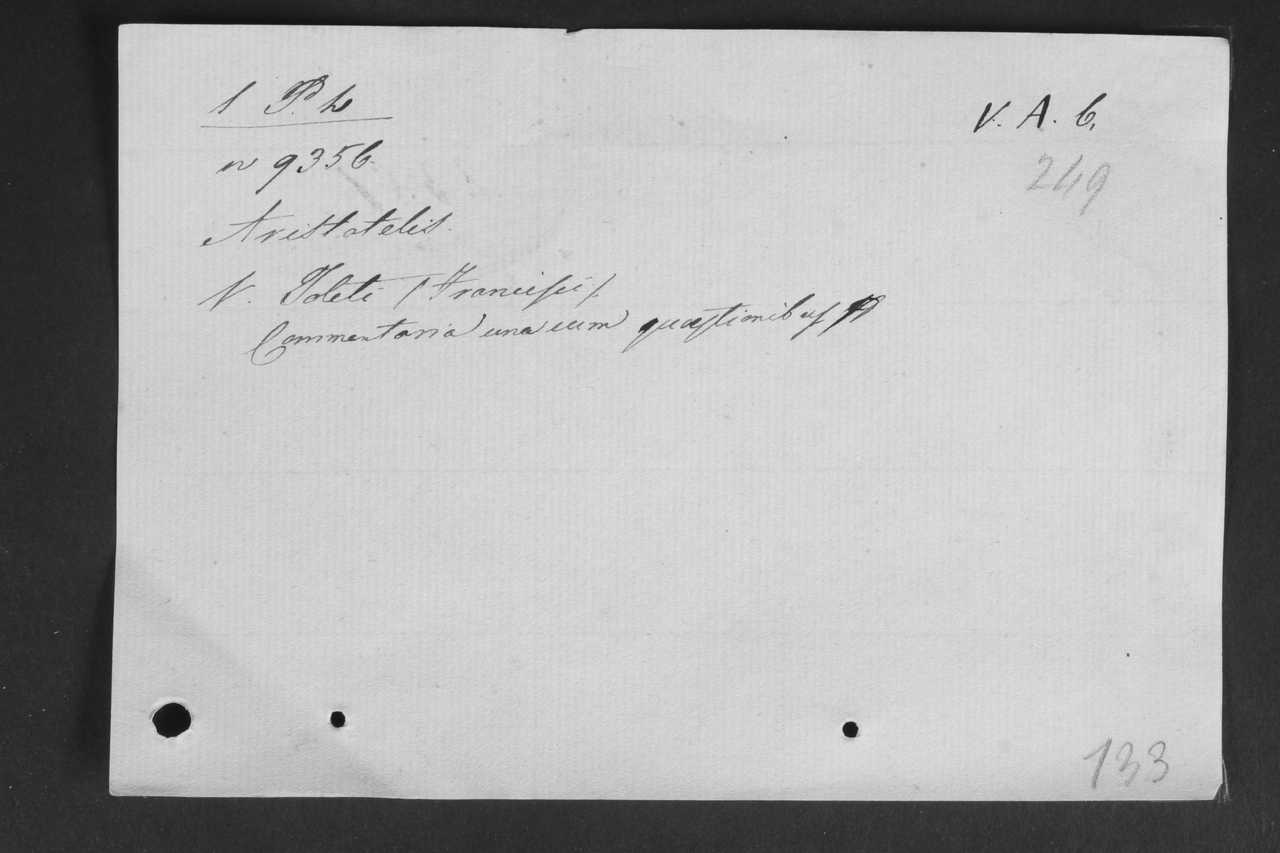 1 Ph
V. A. 6.
n 9356.
249
Aristotelis.
V. Toleti /Francisci/.
Commentaria una cum quæstionibus
133